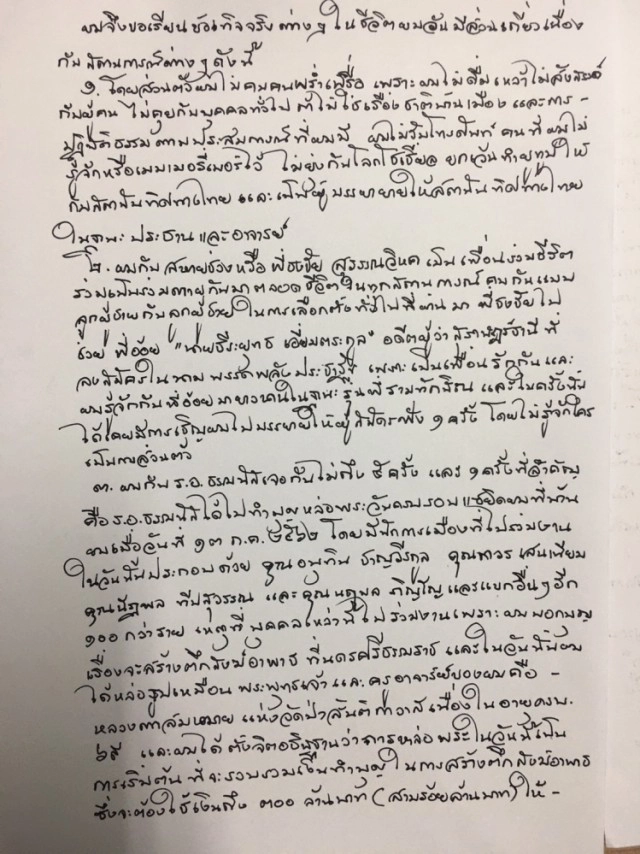 ผมจึงขอเรียนข้อเท็จจริงต่างๆ ในชีวิตผมอันมีส่วนเกี่ยวเนื่อง
กับสถานการณ์ต่างๆ ดังนี้
๑. โดยส่วนตัวผมไม่คบคนพร่ำเพรื่อ เพราะผมไม่ดื่มเหล้าไม่สังสรรค์
กับผู้คน ไม่คุยกับบุคคลทั่วไป ถ้าไม่ใช่เรื่องชาติบ้านเมือง และการ -
ปฏิบัติธรรมตามประสบการณ์ที่ผมมี ผมไม่รับโทรศัพท์ คนที่ผมไม่
รู้จักหรือเมมเมอรี่เบอร์ไว้ ไม่ยุ่งกับโลกโซเชียล ยกเว้นทำยูทูปให้
กับสถาบันทิศทางไทย และเป็นผู้บรรยายให้สถาบันทิศทางไทย
ในฐานะ ประธาน และอาจารย์
๒. ผมกับ สหายช่วงหรือ พี่ธงชัย สุวรรณวิหค เป็นเพื่อนร่วมชีวิต
ร่วมเป็นร่วมตายกันมาตลอดชีวิตในทุกสถานการณ์ คบกันแบบ
ลูกผู้ชายกับลูกผู้ชาย ในการเลือกตั้งทั่วไปที่ผ่านมา พี่ธงชัยไป
ช่วย พี่อ้อย "นายธีระยุทธ เอี่ยมตระกูล" อดีตผู้ว่าสุราษฎร์ธานี ที่
ลงสมัครในนาม พรรคพลังประชารัฐ เพราะเป็นเพื่อนรักกันและ
ผมรู้จักกับพี่อ้อยมายาวนานในฐานะรุ่นพี่รามทักษิณ และในครั้งนั้น
ได้เคยมีการเชิญผมไปบรรยายให้ผู้สมัครฟัง ๑ ครั้ง โดยไม่รู้จักใคร
เป็นการส่วนตัว
๓. ผมกับ ร.อ. ธรรมนัสเจอกันไม่ถึง ๕ ครั้ง และ ๑ ครั้งที่สำคัญ
คือ ร.อ. ธรรมนัสได้ไปทำบุญหล่อพระวันครบรอบ ที่บ้าน
ผมเมื่อวันที่ ๑๓ ก.ค. ๒๕๖๒ โดยมีนักการเมืองที่ไปร่วมงาน
ในวันนี้นประกอบด้วย คุณอนุทิน ชาญวีรกูล คุณถาวร เสนเนียม
คุณณัฏฐพล ทีปสุวรรณ และ คุณนฤมล ภิญโญ และแขกอื่นๆ อีก
๑๐๐ กว่าราย เหตุที่บุคคลเหล่านี้ไปร่วมงานเพราะผมบอกบุญ
เรื่องจะสร้างตึกสงฆ์อาพาธ ที่นครศรีธรรมราช และในวันนั้นผม
ได้หล่อรูปเหมือน พระพุทธเจ้า และครูอาจารย์ของผมคือ -
หลวงตาสมหมาย แห่งวัดป่าสันติกาวาสเนื่องในอายุครบ
๖๙ และผมได้ตั้งจิตอธิษฐานว่าการหล่อพระในวันนี้เป็น
การเริ่มต้น ที่จะรวบรวมเงินทำบุญในการสร้างตึกสงฆ์อาพาธ
ซึ่งจะต้องใช้เงินถึง ๓๐๐ ล้านบาท (สามร้อยล้านบาท) ให้ -